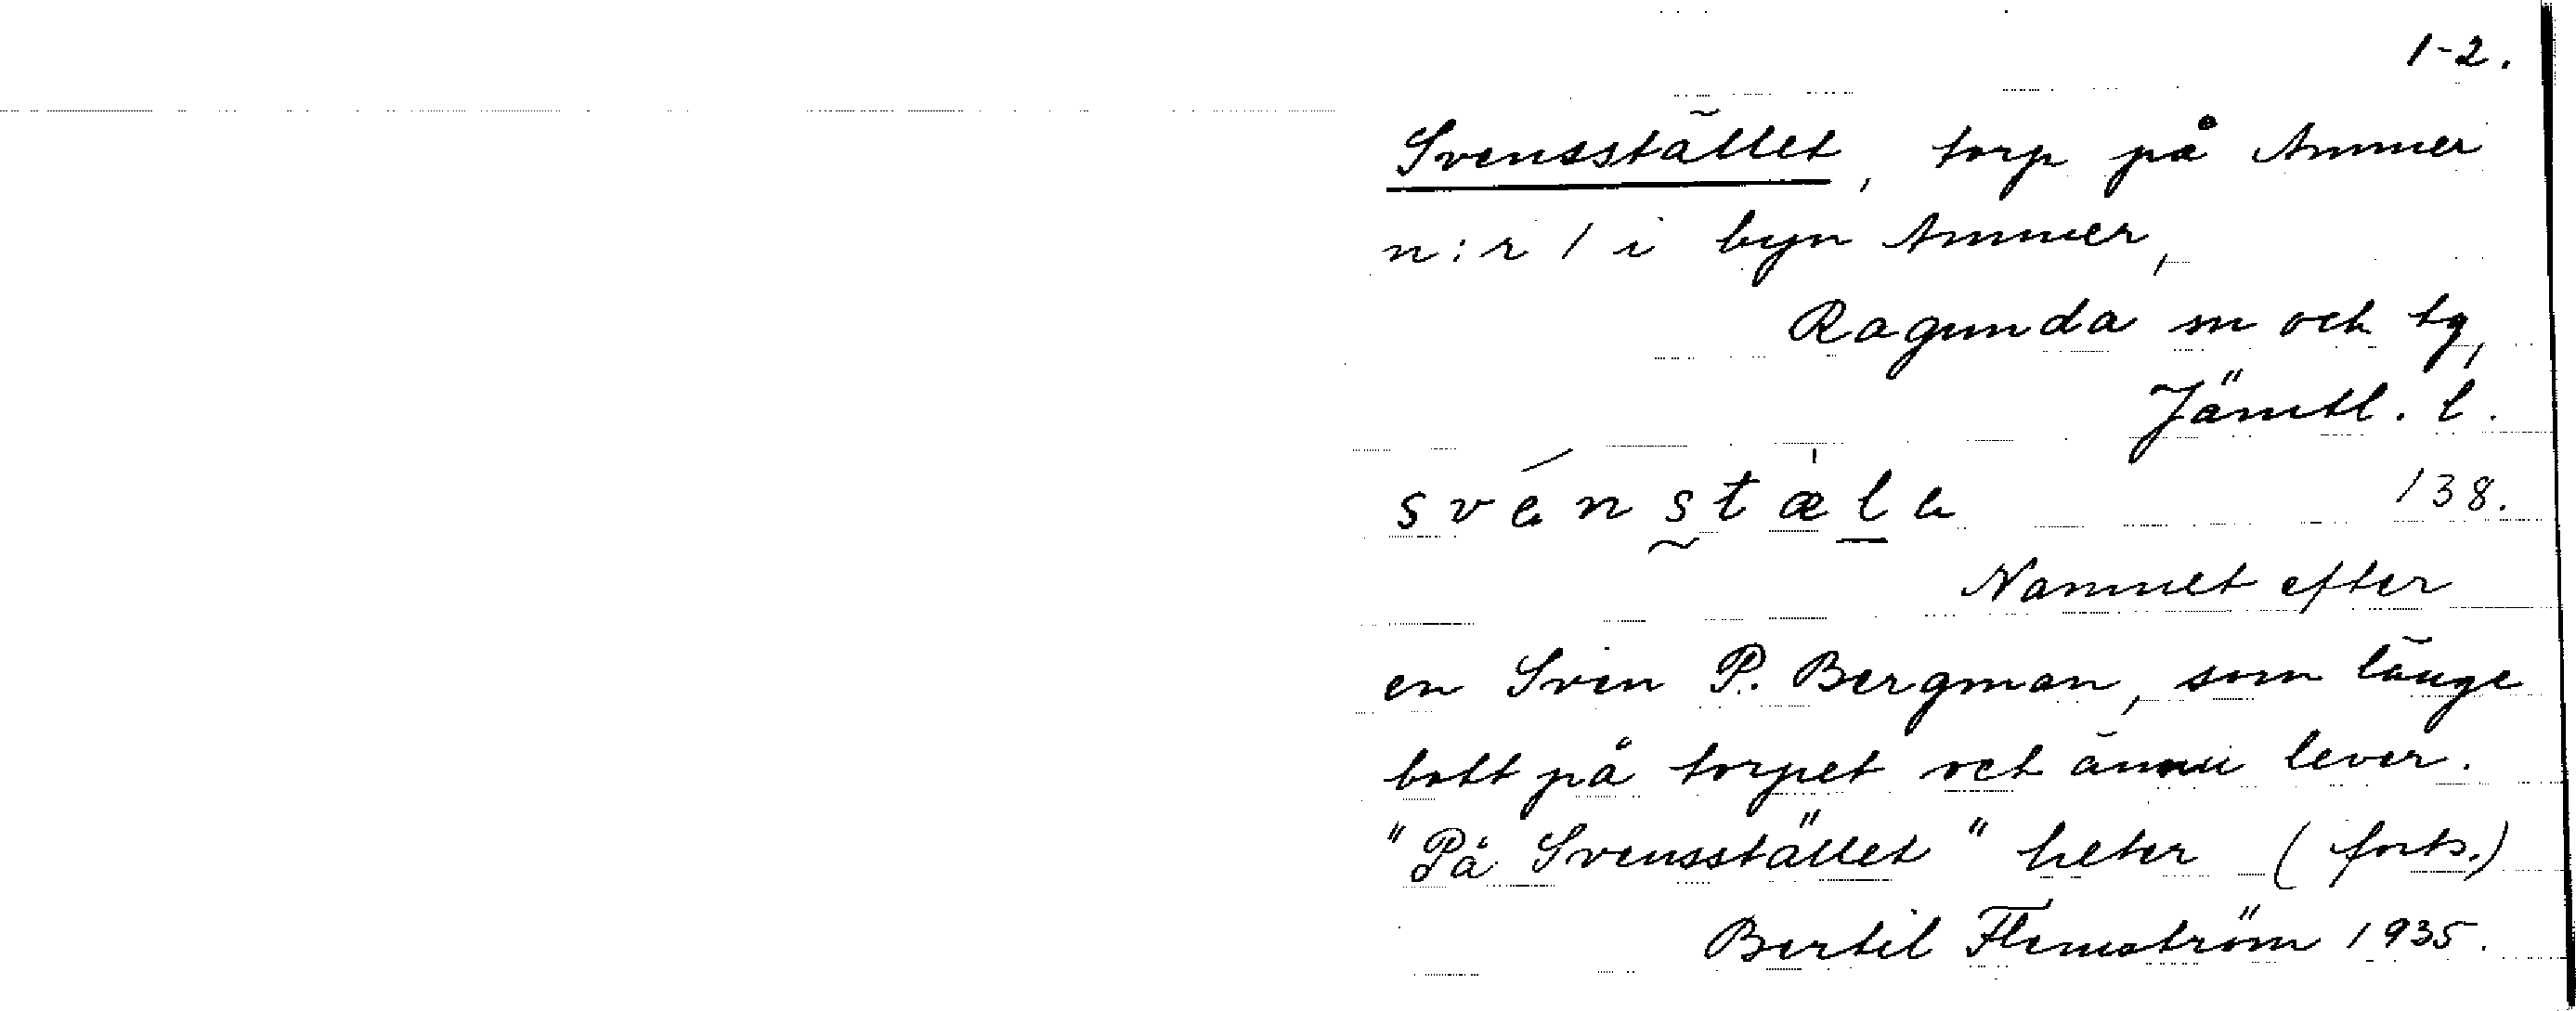 1-2.
Svensstället, torp på Ammer
n:r 1 i byn Ammer,
Ragunda sn och tg,
Jämtl. l.
svénstæle 138.
Namnet efter
en Sven P. Bergman, som länge
bott på torpet och ännu lever.
"På Svensstället" heter (forts.)
Bertil Flemström 1935.